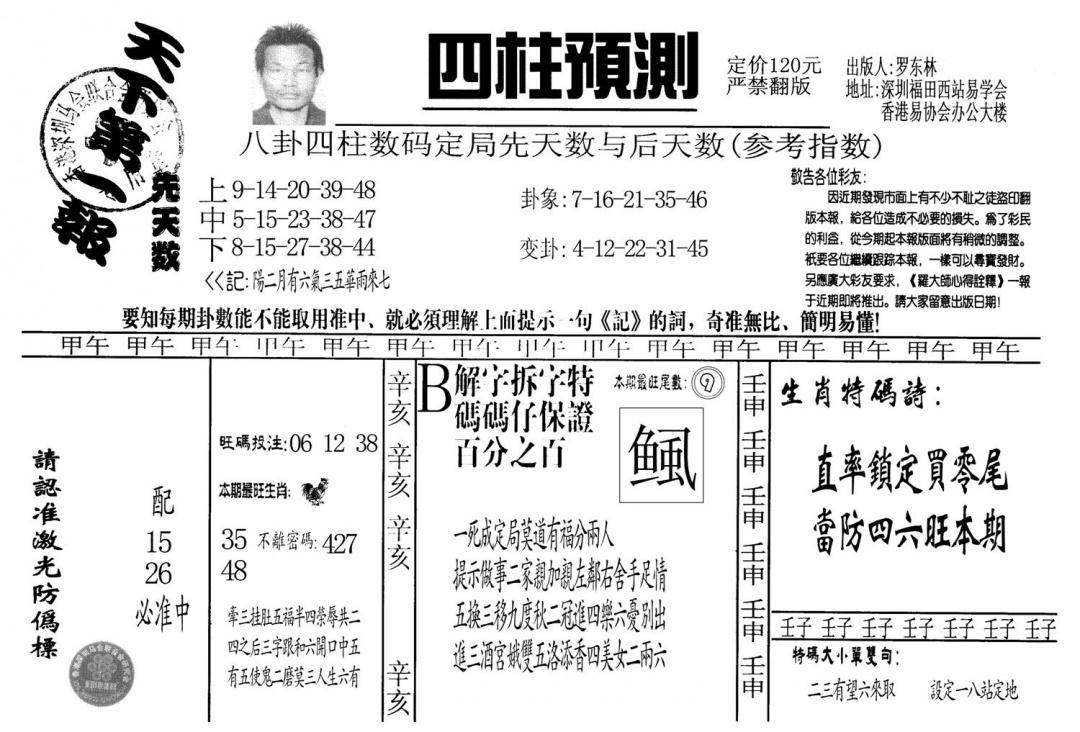 天下第一報
四柱預測
定价120元
严禁翻版
出版人:罗东林
地址:深圳福田西站易学会
香港易协会办公大楼
八卦四柱数码定局先天数与后天数(参考指数)
先天数
上 9-14-20-39-48
中 5-15-23-38-47
下 8-15-27-38-44
卦象:7-16-21-35-46
变卦:4-12-22-31-45
<<記:陽二月有六氣三五華雨來七
敬告各位彩友:
因近期發現市面上有不少不耻之徒盗印翻
版本報,給各位造成不必要的損失。爲了彩民
的利益,從今期起本報版面將有稍微的調整。
祇要各位繼續跟踪本報,一樣可以尋寶發財。
另應廣大彩友要求,《羅大師心得詮釋》一報
于近期即將推出。請大家留意出版日期!
要知每期卦數能不能取用准中、就必須理解上面提示一句《記》的詞,奇准無比、簡明易懂!
甲午 甲午 甲午 甲午 甲午 甲午 甲午 甲午 甲午 甲午 甲午 甲午 甲午 甲午 甲午
請認准激光防僞標
配
15
26
必准中
旺碼投注:06 12 38
本期最旺生肖:
35 不離密碼:427
48
牽三挂肚五福半四榮辱共二
四之后三字跟和六開口中五
有五使鬼二磨莫三人生六有
辛亥
辛亥
辛亥
辛亥
B解字拆字特
碼碼仔保證
百分之百
本期最旺尾數:9
一死成定局莫道有福分兩人
提示做事二家親加親左鄰右舍手足情
五換三移九度秋二冠進四樂六憂別出
進三酒宮娥雙五洛添香四美女二兩六
壬申
壬申
壬申
壬申
壬申
壬申
生肖特碼詩:
直率鎖定買零尾
當防四六旺本期
壬子 壬子 壬子 壬子 壬子 壬子 壬子
特碼大小單雙句:
二三有望六來取 設定一八站定地